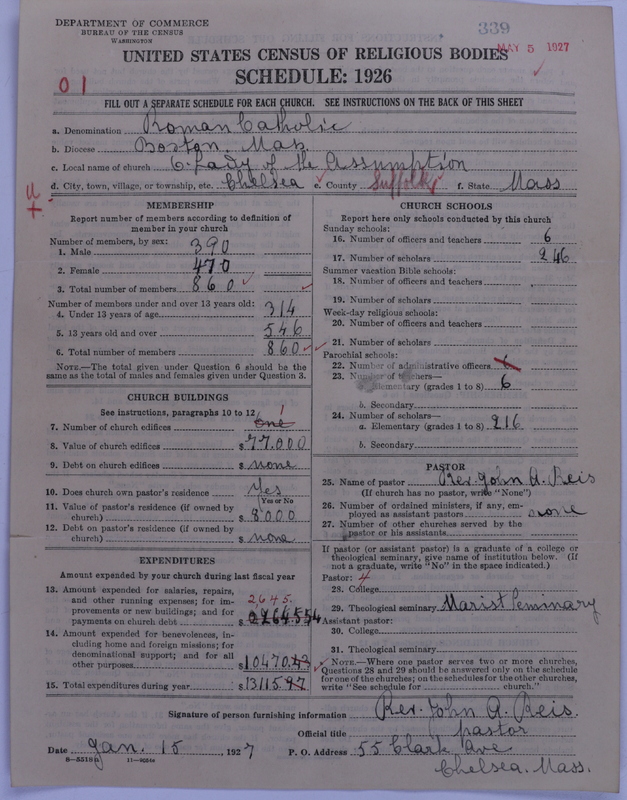 DEPARTMENT OF COMMERCE
BUREAU OF THE CENSUS
WASHINGTON
339
MAY 5 1927
UNITED STATES CENSUS OF RELIGIOUS BODIES
SCHEDULE: 1926
01
FILL OUT A SEPARATE SCHEDULE FOR EACH CHURCH. SEE INSTRUCTIONS ON THE BACK OF THIS SHEET
a. Denomination Roman Catholic
b. Diocese Boston, Mas.
c. Local name of church O. Lady of the Assumption
d. City, town, village, or township, etc. Chelsea e. County Suffolk f. State Mass
MEMBERSHIP
Report number of members according to definition of member in your church
Number of members, by sex:
1. Male 390
2. Female 470
3. Total number of members 860
Number of members under and over 13 years old:
4. Under 13 years of age 314
5. 13 years old and over 546
6. Total number of members 860
NOTE.—The total given under Question 6 should be the
same as the total of males and females given under Question 3.
CHURCH BUILDINGS
See instructions, paragraphs 10 to 12
7. Number of church edifices one 1
8. Value of church edifices $77,000
9. Debt on church edifices $ none
10. Does church own pastor's residence Yes
Yes or No
11. Value of pastor's residence (if owned by
church) $8000
12. Debt on pastor's residence (if owned by
church) $ none
EXPENDITURES
Amount expended by your church during last fiscal year
13. Amount expended for salaries, repairs,
and other running expenses; for im-
provements or new buildings; and for
payments on church debt $ 2645.
14. Amount expended for benevolences, in-
cluding home and foreign missions; for
denominational support; and for all
other purposes $10470.
15. Total expenditures during year $13115.97
CHURCH SCHOOLS
Report here only schools conducted by this church
Sunday schools:
16. Number of officers and teachers 6
17. Number of scholars 246
Summer vacation Bible schools:
18. Number of officers and teachers
19. Number of scholars
Week-day religious schools:
20. Number of officers and teachers
21. Number of scholars
Parochial schools:
22. Number of administrative officers 6
23. Number of teachers—
a. Elementary (grades 1 to 8) 6
b. Secondary
24. Number of scholars—
a. Elementary (grades 1 to 8) 216
b. Secondary
PASTOR
25. Name of pastor Rev. John A. Reis
(If church has no pastor, write "None")
26. Number of ordained ministers, if any, em-
ployed as assistant pastors none
27. Number of other churches served by the
pastor or his assistants
If pastor (or assistant pastor) is a graduate of a college or
theological seminary, give name of institution below. (If
not a graduate, write "No" in the space indicated.)
Pastor: 4
28. College
29. Theological seminary Marist Seminary
Assistant pastor:
30. College
31. Theological seminary
NOTE.—Where one pastor serves two or more churches,
Questions 28 and 29 should be answered only on the schedule
for one of the churches; on the schedules for the other churches,
write "See schedule for church."
Signature of person furnishing information Rev. John A. Reis.
Official title pastor
Date Jan. 15, 1927 P. O. Address 55 Clark Ave
Chelsea, Mass.